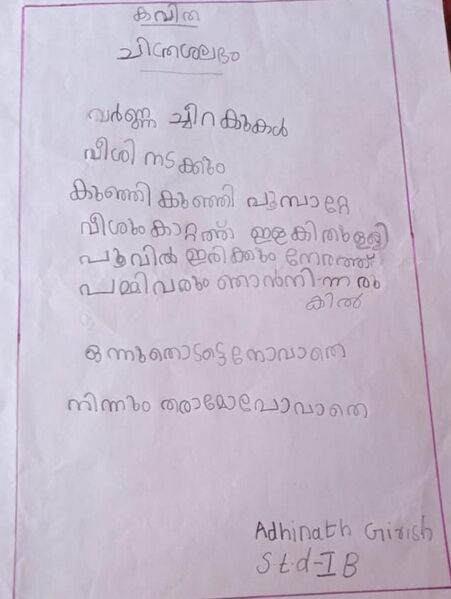 കവിത
ചിത്രശലഭം
വർണ്ണ ച്ചിറകുകൾ
വീശി നടക്കും
കുഞ്ഞി കുഞ്ഞി പൂമ്പാറ്റേ
വീശും കാറ്റത്ത് ഇളകി തുള്ളി
പൂവിൽ ഇരിക്കും നേരത്ത്
പമ്മിവരും ഞാൻനിന്നരു
കിൽ
ഒന്നുതൊടട്ടെനോവാതെ
നിന്നും തരാമോപോവാതെ
Adhinath Girish
S.t.d-I B